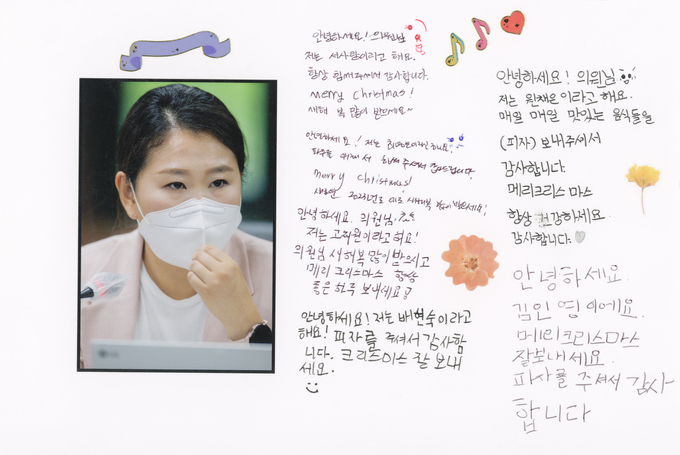 안녕하세요! 의원님
저는 서사랑이라고 해요.
항상 힘써주셔서 감사합니다.
merry christmas!
새해 복 많이 받으세요~
안녕하세요! 저는
merry christmas!
안녕하세요. 의원님.
저는 고희원이라고 해요!
의원님 새해복 많이 받으시고
메리 크리스마스 항상
좋은 하루 보내세요?
안녕하세요! 저는 배현숙이라고
해요! 피자를 주셔서 감사합
니다. 크리스마스 잘 보내
세요.
안녕하세요! 의원님
저는 원채은이라고 해요.
매일 매일 맛있는 음식들을
(피자) 보내주셔서
감사합니다.
메리크리스마스
항상 건강하세요.
감사합니다.
안녕하세요.
김인영이에요.
메리크리스마스
잘보내세요.
피자를 주셔서 감사
합니다